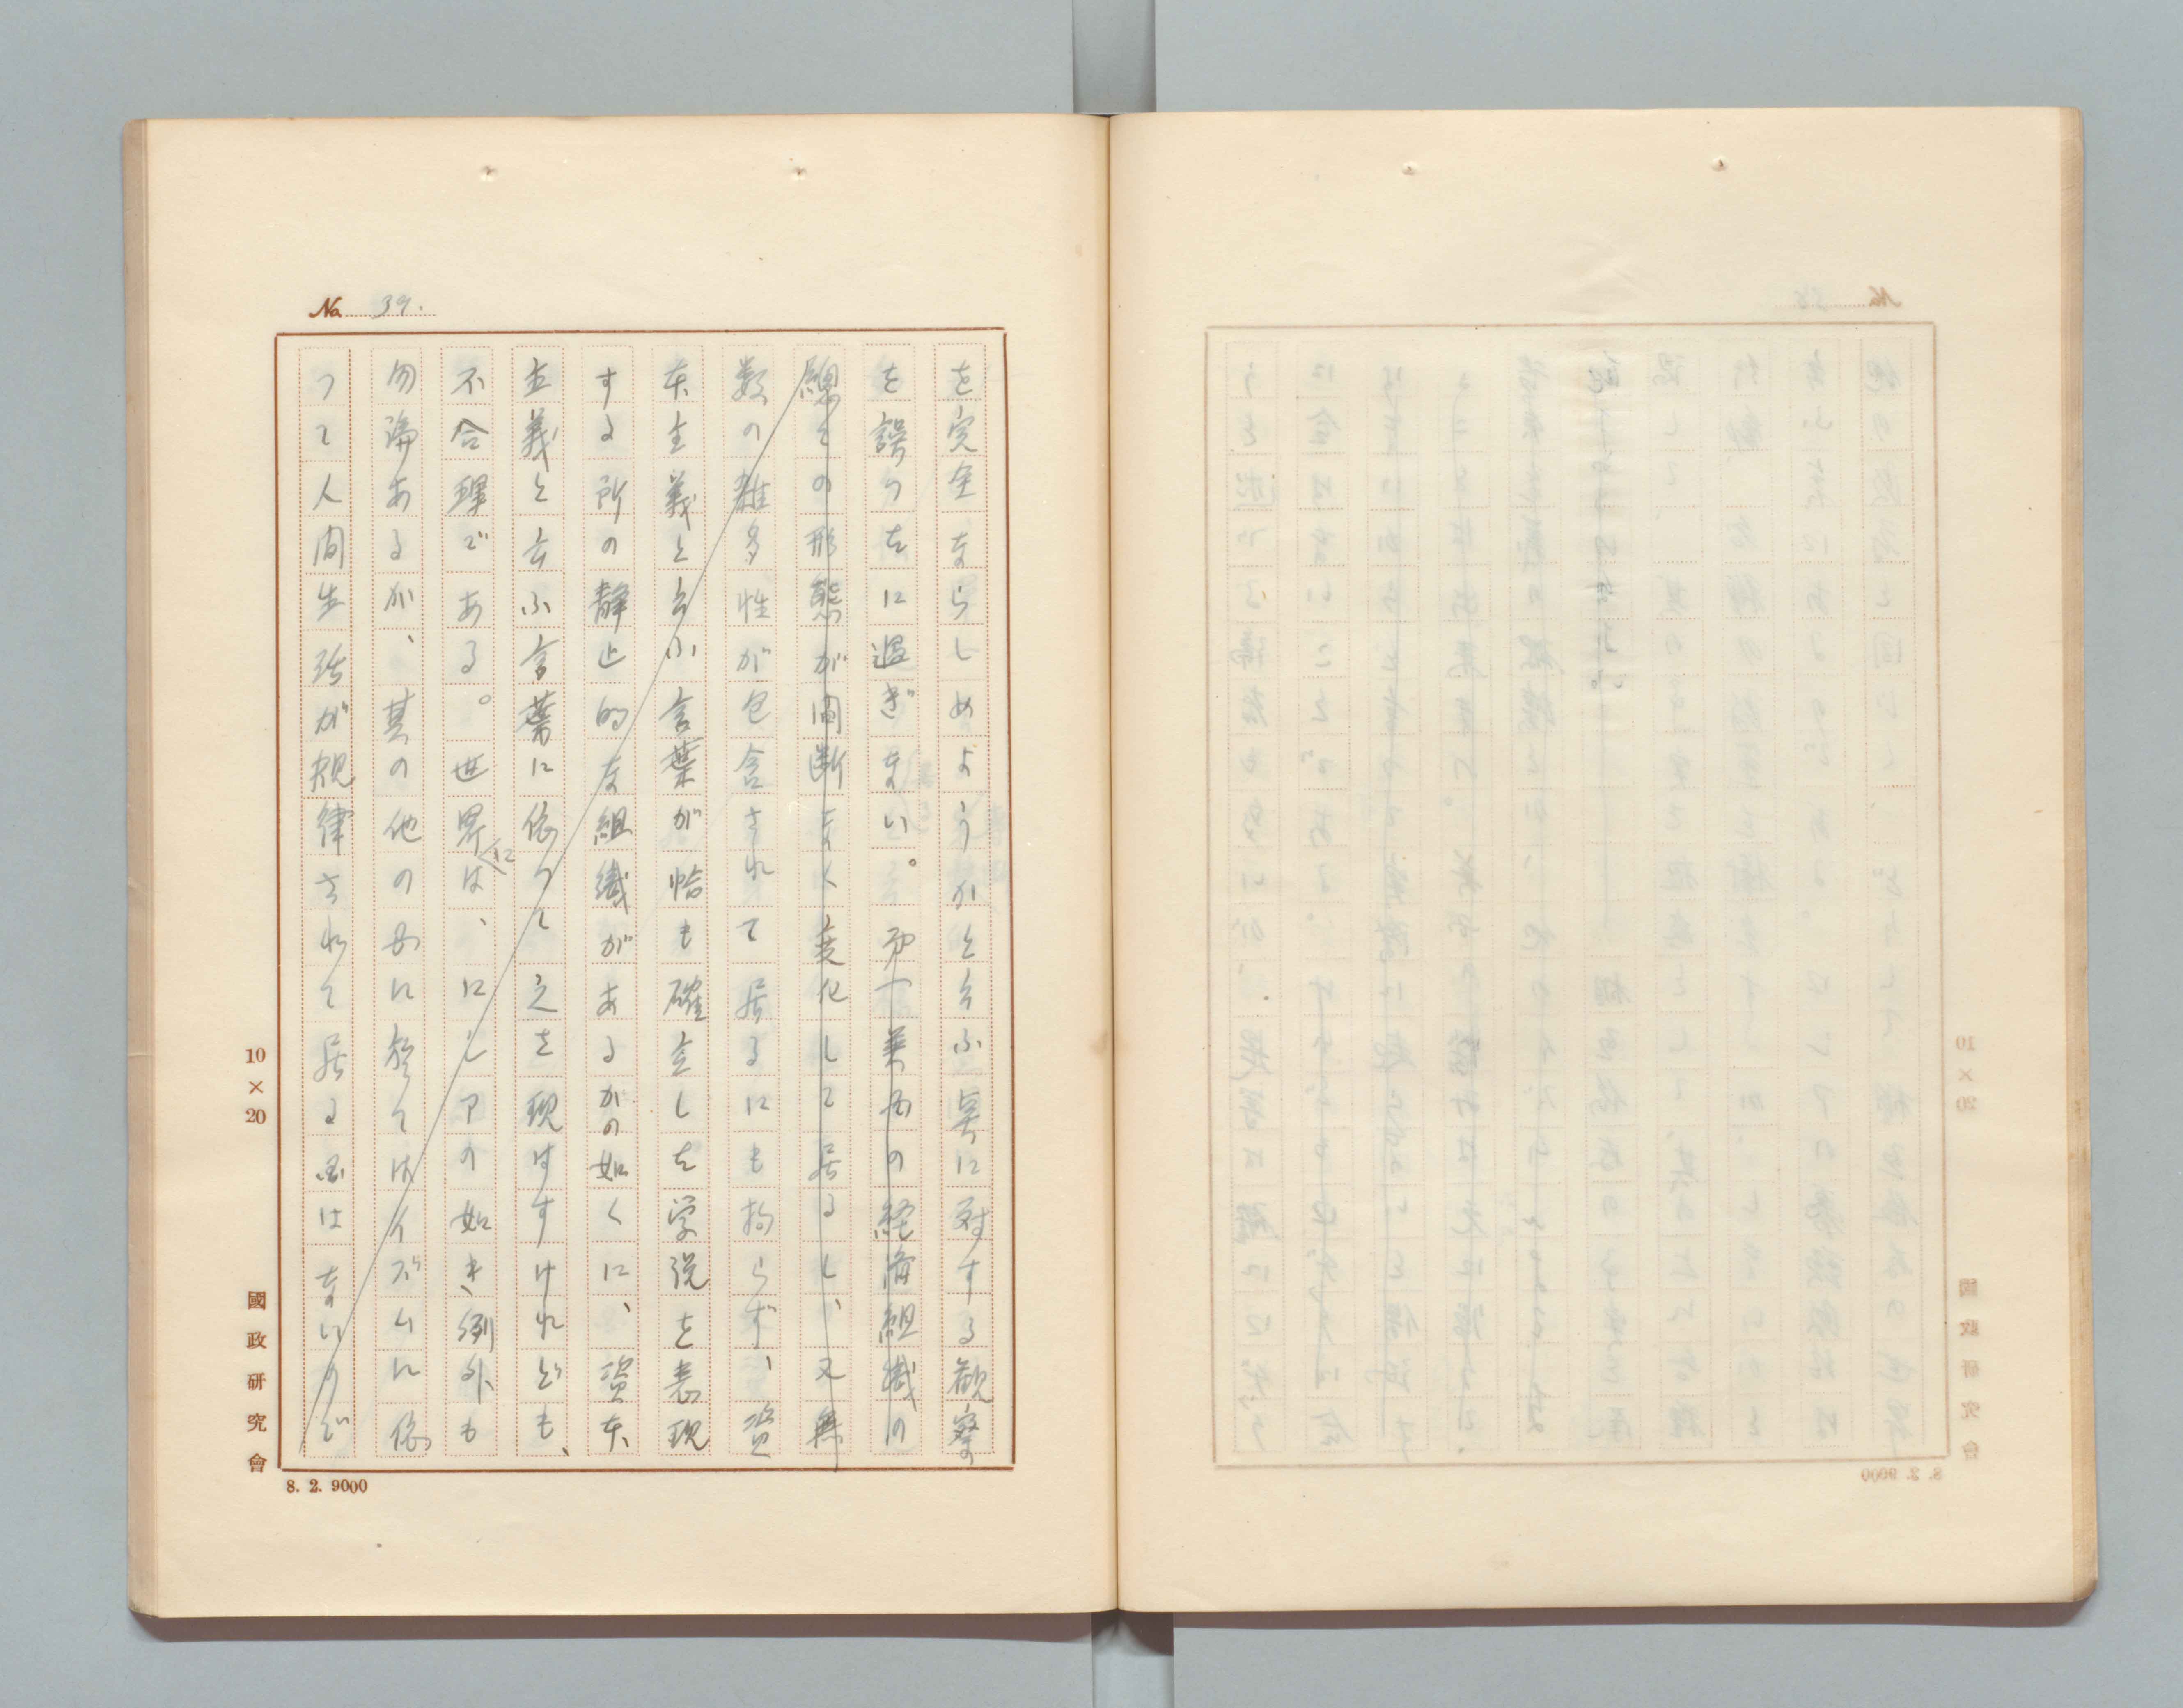 No. 39.
を完全ならしめようかと云ふ実に対する観察の
を誤つたに過ぎない。第一英国の経済組織の
總ての形態が間断なく変化して居るし、又無
数の雑多性が包含されて居るにも拘らず、資
本主義と云ふ言葉が恰も確立した学説を表現
する所の静止的な組織があるかの如くに、資本
主義と云ふ言葉に依つて之を現はすけれども、
不合理である。世界には、ロシアの如き例外も
勿論あるが、其の他の国に於てはイズムに依
つて人間生活が規律されて居る国はないので
10×20
國政研究會
8. 2. 9000